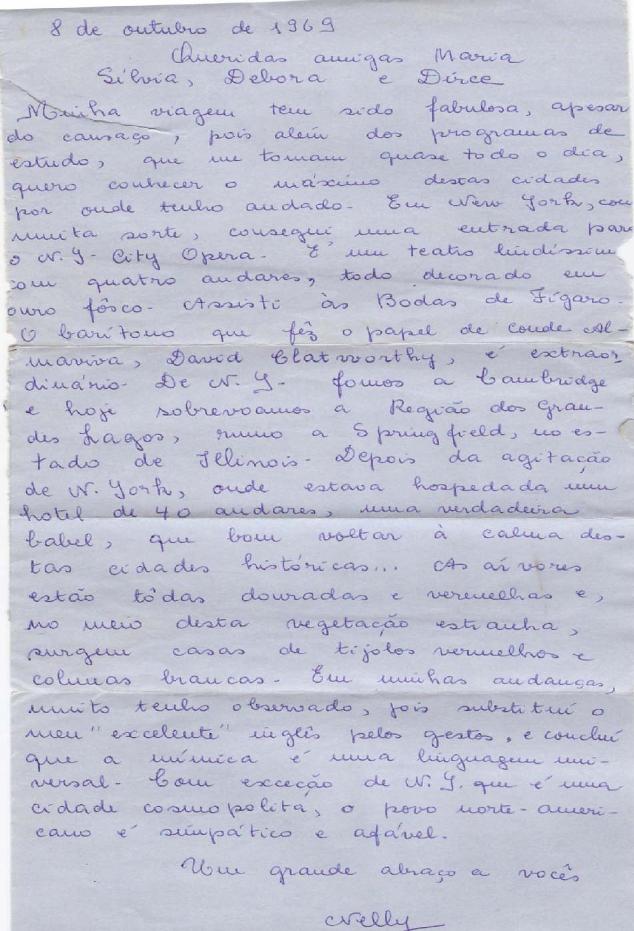 8 de outubro de 1969
Queridas amigas Maria
Silvia, Debora e Dirce
Minha viagem tem sido fabulosa, apesar
do cansaço, pois alem dos programas de
estudo, que me tomam quase todo o dia,
quero conhecer o máximo destas cidades
por onde tenho andado. Em New York, com
muita sorte, consegui uma entrada para
o N.Y. City Opera. É um teatro lindíssimo
com quatro andares, todo decorado em
ouro fôsco. Assisti às Bodas de Fígaro.
O barítono que fêz o papel de conde Al-
maviva, David Clatworthy, é extraor-
dinário. De N.Y. fomos a Cambridge
e hoje sobrevoamos a Região dos Gran-
des Lagos, rumo a Springfield, no es-
tado de Illinois. Depois da agitação
de N. York, onde estava hospedada num
hotel de 40 andares, uma verdadeira
babel, que bom voltar à calma des-
tas cidades históricas... As aívores
estão tôdas douradas e vermelhas e,
no meio desta vegetação estranha,
surgem casas de tijolos vermelhos e
colunas brancas. Em minhas andanças,
muito tenho observado, pois substituí o
meu "excelente" inglês pelos gestos, e concluí
que a mímica é uma linguagem uni-
versal. Com exceção de N.Y. que é uma
cidade cosmopolita, o povo norte-ameri-
cano é simpático e afável.
Um grande abraço a vocês
Nelly